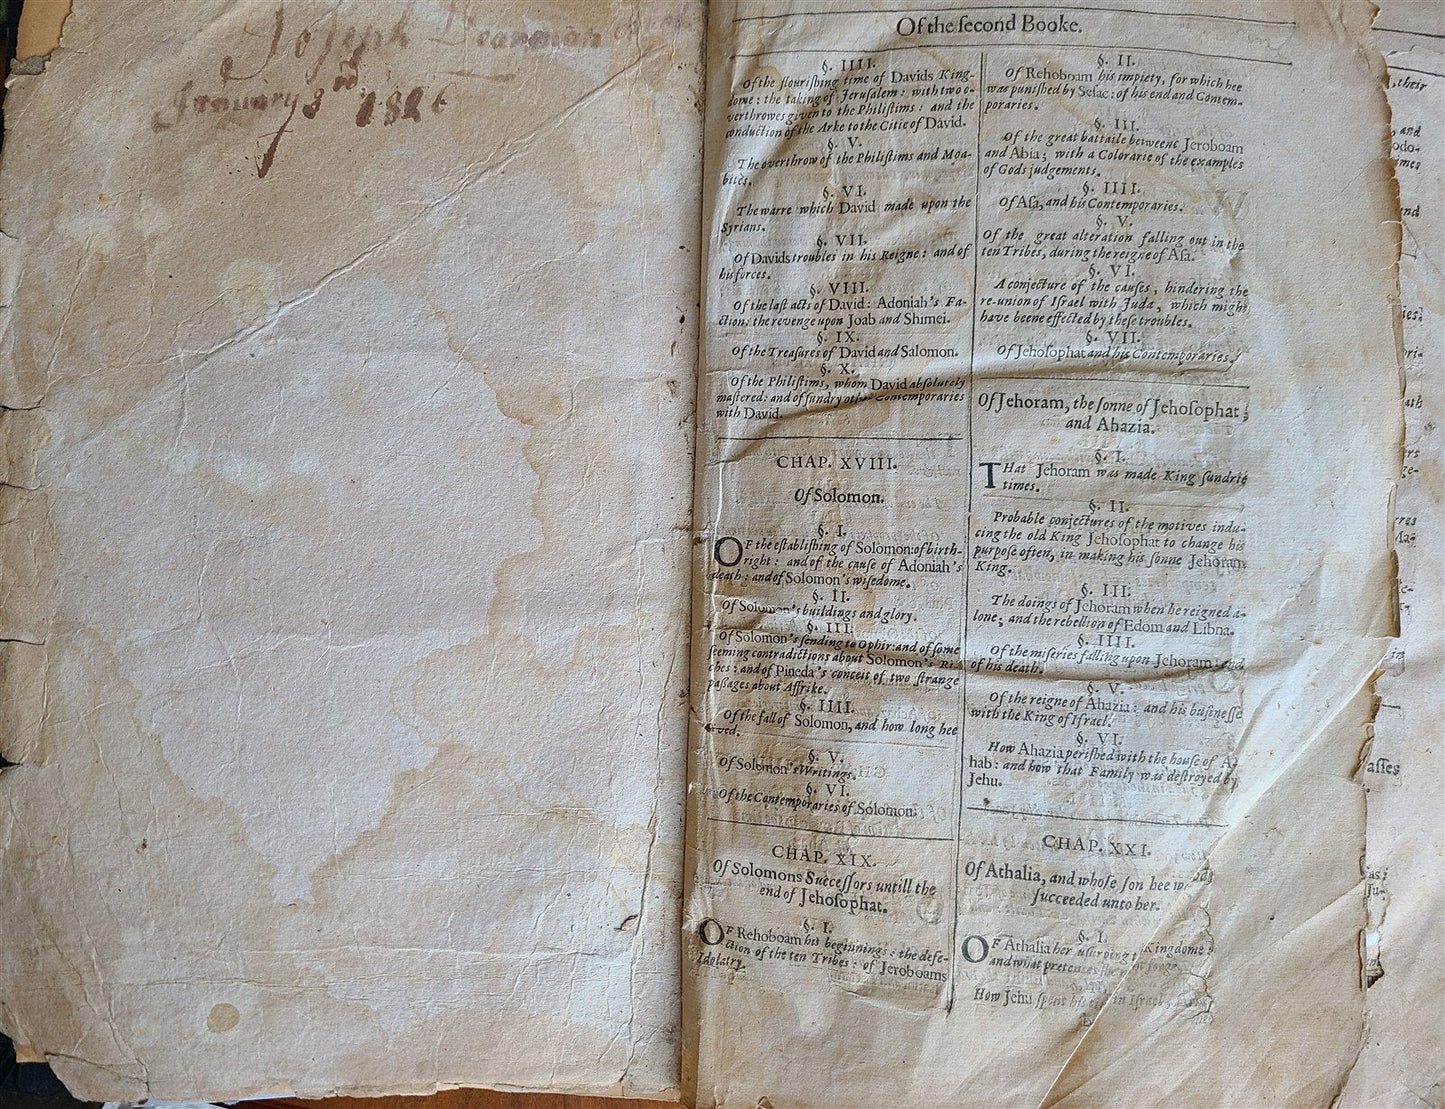 Joseph Dearman
January 3rd 1826
Of the ſecond Booke.
§. IIII.
Of the flouriſhing time of Davids King-
dome: the taking of Jeruſalem: with two o-
verthrowes given to the Philiſtims: and the
conduction of the Arke to the Citie of David.
§. V.
The overthrow of the Philiſtims and Moa-
bites.
§. VI.
The warre which David made upon the
Syrians.
§. VII.
Of Davids troubles in his Reigne: and of
his forces.
§. VIII.
Of the laſt acts of David: Adoniah's Fa-
ction. the revenge upon Joab and Shimei.
§. IX.
Of the Treaſures of David and Salomon.
§. X.
Of the Philiſtims, whom David abſolutely
maſtered: and of ſundry other Contemporaries
with David.
CHAP. XVIII.
Of Solomon.
§. I.
OF the eſtabliſhing of Solomon: of birth-
right: and of the cauſe of Adoniah's
death: and of Solomon's wiſedome.
§. II.
Of Solomon's buildings and glory.
§. III.
Of Solomon's ſending to Ophir: and of ſome
ſeeming contradictions about Solomon's Ri-
ches: and of Pineda's conceit of two ſtrange
paſſages about Affrike.
§. IIII.
Of the fall of Solomon, and how long hee
lived.
§. V.
Of Solomon's Writings.
§. VI.
Of the Contemporaries of Solomon.
CHAP. XIX.
Of Solomons Succeſſors untill the
end of Jehoſophat.
§. I.
OF Rehoboam his beginnings: the defe-
ction of the ten Tribes: of Jeroboams
Idolatry.
§. II.
Of Rehoboam his impiety, for which hee
was puniſhed by Seſac: of his end and Contem-
poraries.
§. III.
Of the great battaile betweene Jeroboam
and Abia; with a Colorarie of the examples
of Gods judgements.
§. IIII.
Of Aſa, and his Contemporaries.
§. V.
Of the great alteration falling out in the
ten Tribes, during the reigne of Aſa.
§. VI.
A conjecture of the cauſes, hindering the
re-union of Iſrael with Juda, which might
have beene effected by theſe troubles.
§. VII.
Of Jehoſophat and his Contemporaries.
Of Jehoram, the ſonne of Jehoſophat;
and Ahazia.
§. I.
THat Jehoram was made King ſundrie
times.
§. II.
Probable conjectures of the motives indu-
cing the old King Jehoſophat to change his
purpoſe often, in making his ſonne Jehoram
King.
§. III.
The doings of Jehoram when he reigned a-
lone; and the rebellion of Edom and Libna.
§. IIII.
Of the miſeries falling upon Jehoram: and
of his death.
§. V.
Of the reigne of Ahazia: and his buſineſſe
with the King of Iſrael.
§. VI.
How Ahazia periſhed with the houſe of A-
hab: and how that Family was deſtroyed by
Jehu.
CHAP. XXI.
Of Athalia, and whoſe ſon hee was
ſucceeded unto her.
§. I.
OF Athalia her uſurping Kingdome:
and what pretences
How Jehu ſpent his in Iſrael,